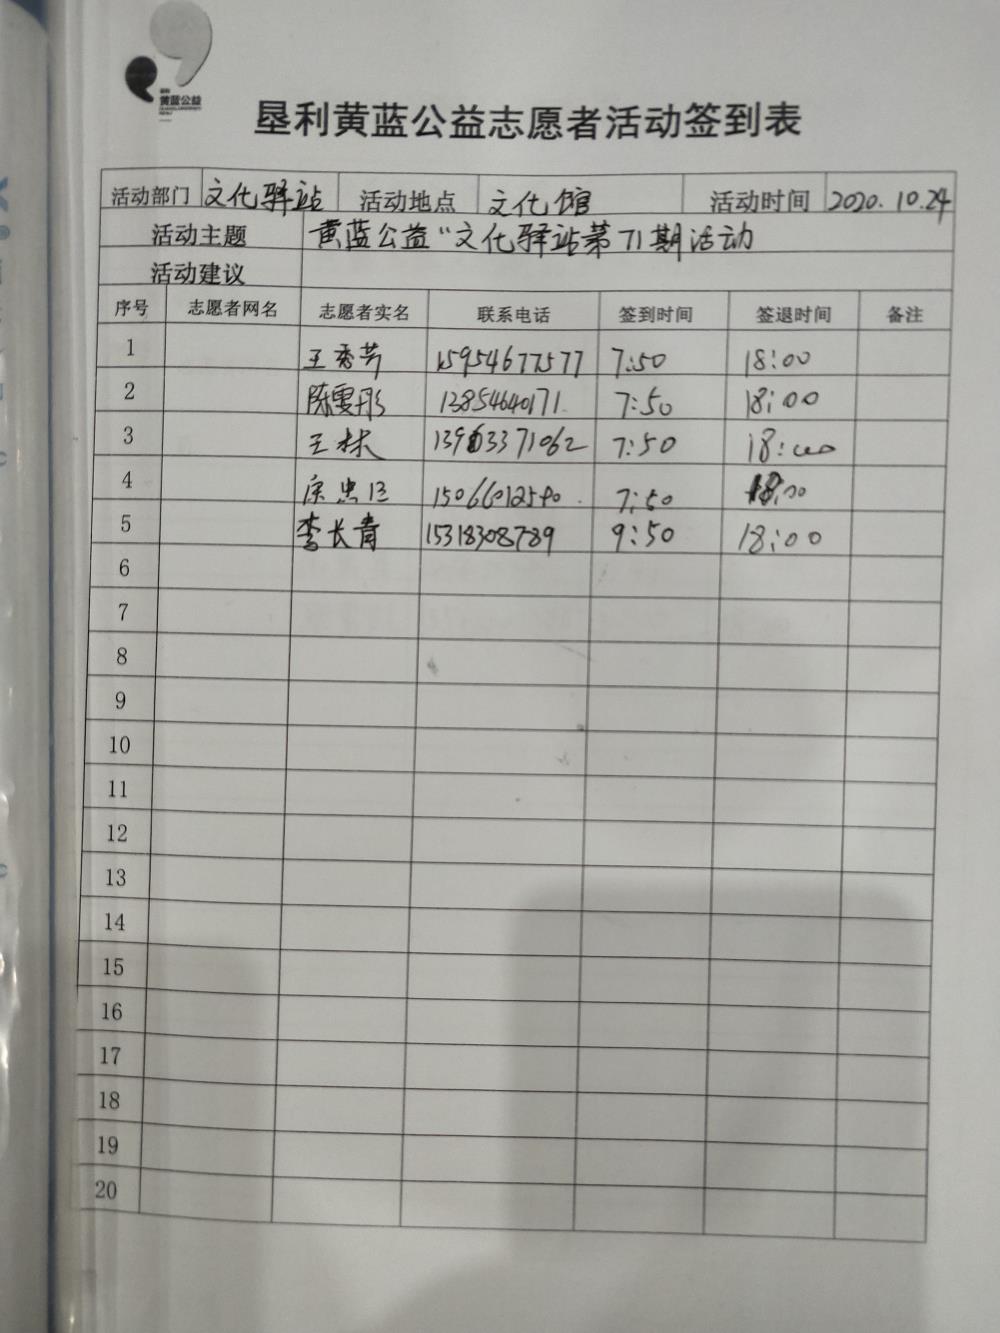 黄蓝公益
垦利黄蓝公益志愿者活动签到表
活动部门 文化驿站 活动地点 文化馆 活动时间 2020.10.24
活动主题 黄蓝公益“文化驿站第71期活动
活动建议
序号 志愿者网名 志愿者实名 联系电话 签到时间 签退时间 备注
1 王秀芳 15954677577 7:50 18:00
2 陈雯彤 13854640171 7:50 18:00
3 王林 13963371062 7:50 18:00
4 15066012580 7:50 18:00
5 李长青 15318308789 9:50 18:00
6
7
8
9
10
11
12
13
14
15
16
17
18
19
20